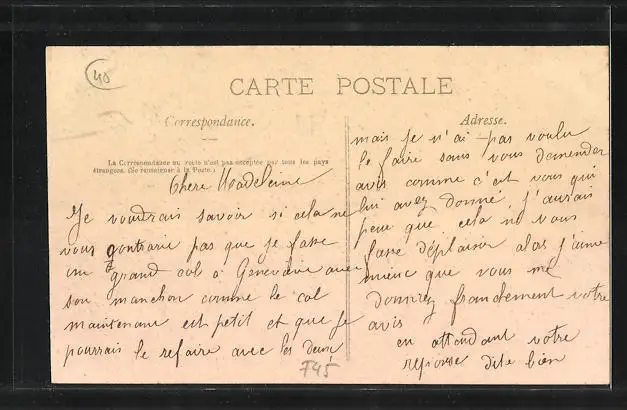 40
CARTE POSTALE
Correspondance.
La Correspondance au recto n'est pas acceptée par tous les pays
étrangers. (Se renseigner à la Poste.)
Chere Madeleine
Je voudrais savoir si cela ne
vous contrarie pas que je fasse
un grand col a Geneviève avec
son manchon comme le col
maintenant est petit et que je
pourrais le refaire avec les deux
745
Adresse.
mais je n'ai pas voulu
le faire sans vous demander
avis comme c'est vous qui
lui avez donné j'aurais
peur que cela ne vous
fasse déplaisir alors j'aime
mieux que vous me
donniez franchement votre
avis
en attendant votre
reponse dite bien